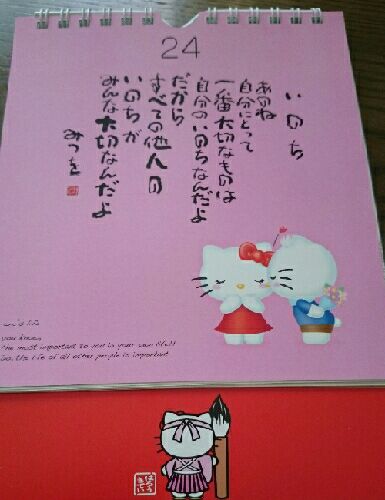 24
いのち
あのね
自分にとって
一番大切なものは
自分のいのちなんだよ
だから
すべての他人の
いのちが
みんな大切なんだよ
みつを
you know,
The most important to you is your own life!!
So, the life of all other people is important